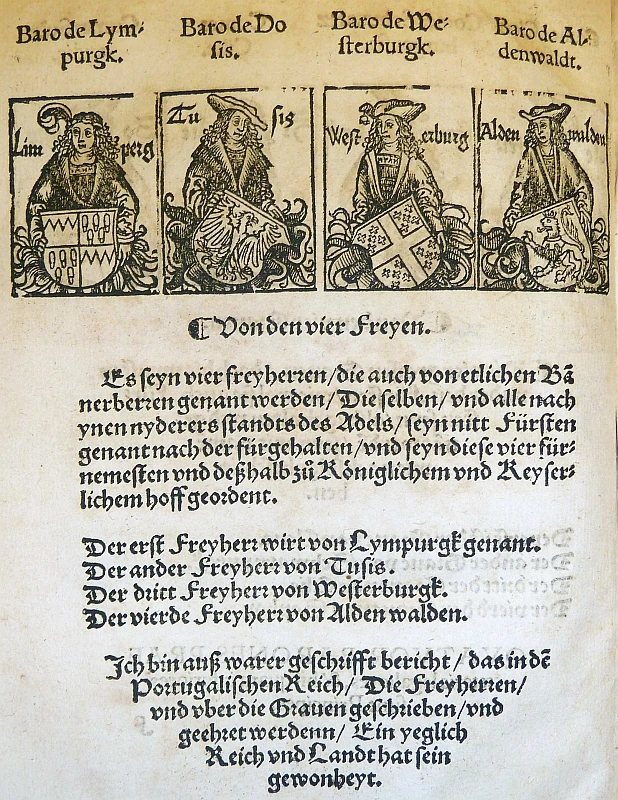 Baro de Lym-
purgk.
Baro de Do
sis.
Baro de We-
sterburgk.
Baro de Al-
denwaldt.
Lim perg
Tu sis
West erburg
Alden walden
¶ Von den vier Freyen.
Es seyn vier freyherren/die auch von etlichen Bā
nerherren genant werden/Die selben/vnd alle nach
ynen nyderers standts des Adels/seyn nitt Fürsten
genant nach der fürgehalten/vnd seyn diese vier für-
nemesten vnd deßhalb zů Königlichem vnd Keyser-
lichem hoff geordent.
Der erst Freyherr wirt von Lympurgk genant.
Der ander Freyherr von Tusis.
Der dritt Freyherr von Westerburgk.
Der vierde Freyherr von Alden walden.
Ich bin auß warer geschrifft bericht/das in dē
Portugalischen Reich/Die Freyherren/
vnd vber die Grauen geschrieben/vnd
geehret werdenn/Ein yeglich
Reich vnd Landt hat sein
gewonheyt.